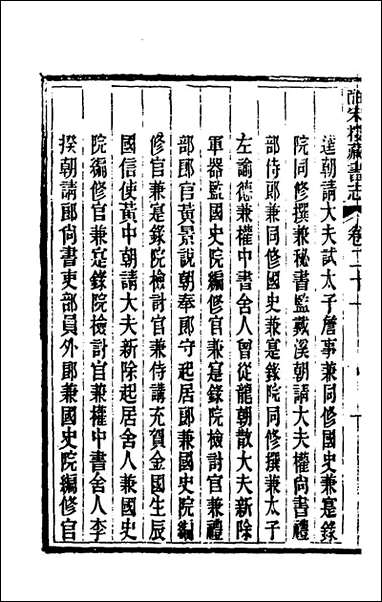 皕宋樓藏書志 卷二十一
逹朝請大夫試太子詹事兼同修國史兼寔錄
院同修撰兼秘書監戴溪朝請大夫權尙書禮
部侍郎兼同修國史兼寔錄院同修撰兼太子
左諭德兼權中書舍人曾從龍朝散大夫新除
軍器監國史院編修官兼寔錄院檢討官兼禮
部郎官黃景說朝奉郎守起居郎兼國史院編
修官兼寔錄院檢討官兼侍講充賀金國生辰
國信使黃中朝請大夫新除起居舍人兼國史
院編修官兼寔錄院檢討官兼權中書舍人李
揆朝請郎尙書吏部員外郎兼國史院編修官